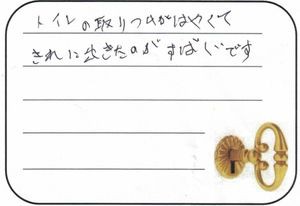 トイレの取りつけがはやくて
きれに出きたのがすばしいです